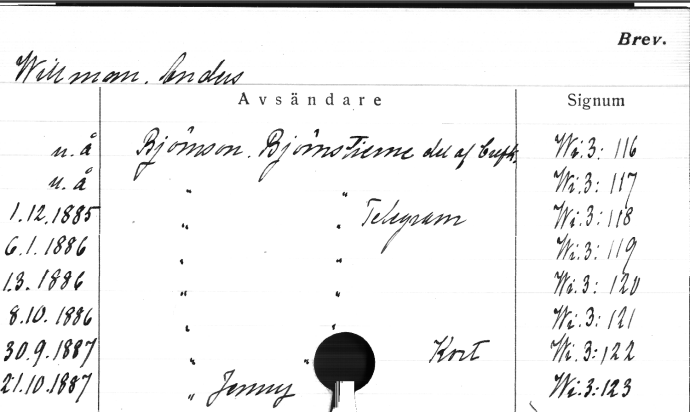 Brev.
Willman. Anders
Avsändare Signum
u.å Björnson. Björnstierne del af Wi.3: 116
u.å " " Wi.3: 117
1.12.1885 " " Telegram Wi.3: 118
6.1.1886 " " Wi.3: 119
1.3.1886 " " Wi.3: 120
8.10.1886 " " Wi.3: 121
30.9.1887 " " Kort Wi.3: 122
21.10.1887 " Jenny Wi.3: 123